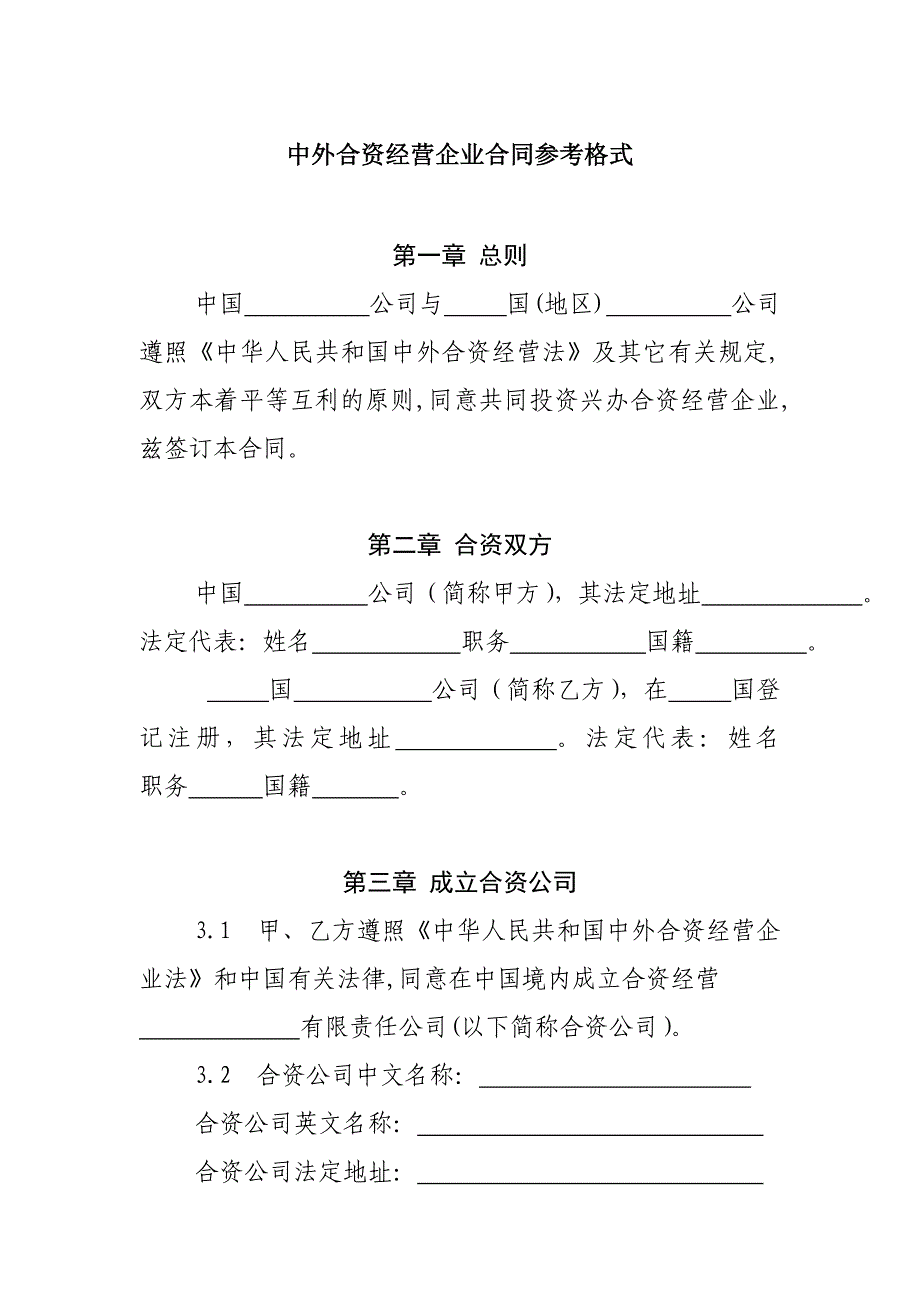 中外合资经营企业合同参考格式
第一章 总则
中国__________公司与_____国(地区)__________公司
遵照《中华人民共和国中外合资经营法》及其它有关规定,
双方本着平等互利的原则,同意共同投资兴办合资经营企业,
兹签订本合同。
第二章 合资双方
中国__________公司(简称甲方), 其法定地址_____________。
法定代表: 姓名____________职务___________国籍_________。
_____国___________公司(简称乙方), 在_____国登
记注册, 其法定地址_____________。法定代表: 姓名
职务______国籍_______。
第三章 成立合资公司
3.1 甲、乙方遵照《中华人民共和国中外合资经营企
业法》和中国有关法律,同意在中国境内成立合资经营
_____________有限责任公司(以下简称合资公司)。
3.2 合资公司中文名称: ______________________
合资公司英文名称: ____________________________
合资公司法定地址: ____________________________